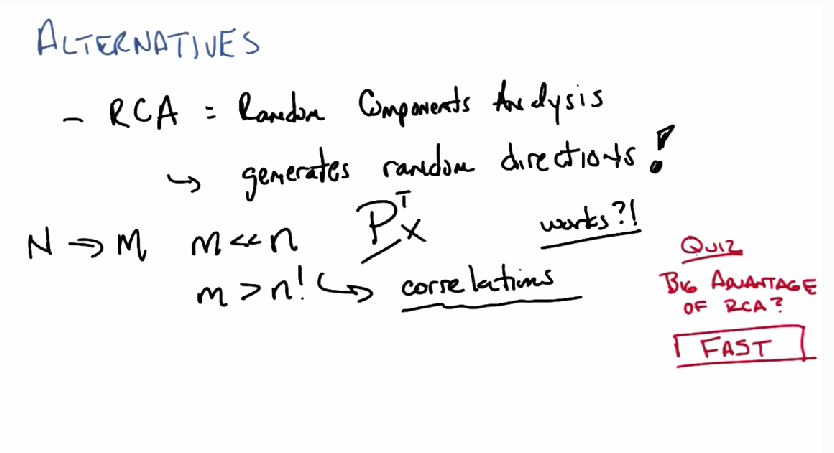 ALTERNATIVES
- RCA = Random Components Analysis
↳ generates random directions!
N ⇒ M m << n Pᵀx works?!
m > n! ↪ correlations
QUIZ
BIG ADVANTAGE
OF RCA?
FAST